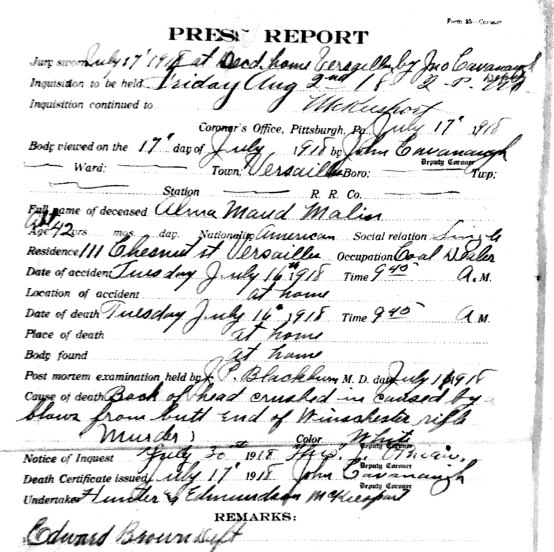 Form 25—Coroner
PRESS REPORT
Jury sworn July 17" 1918 at Decd. home Versailles by Jno Cavanaugh Deputy
Inquisition to be held Friday Aug 2nd 18 2 P.M.
Inquisition continued to McKeesport
Coroner's Office, Pittsburgh, Pa. July 17" 1918
Body viewed on the 17" day of July 1918 by John Cavanaugh
Deputy Coroner
Ward: Town: Versailles Boro: Twp:
Station R. R. Co.
Full name of deceased Alma Maud Malin
Abt
Age 42 yrs mos. day. Nationality American Social relation Single
Residence 111 Chesnut st Versailles Occupation Coal Dealer
Date of accident Tuesday July 16th 1918 Time 9 45 A. M.
Location of accident at home
Date of death Tuesday July 16" 1918 Time 9 45 A M.
Place of death at home
Body found at home
Post mortem examination held by J. P. Blackburn M. D. day July 1918
Cause of death Back of head crushed in caused by
blows from butt end of Winschester rifle
Murder Color White
Notice of Inquest July 30th 1918
Deputy Coroner
Death Certificate issued July 17" 1918 John Cavanaugh
Deputy Coroner
Undertaker Hunter & Edmundson McKeesport
REMARKS:
Edward Brown Deft